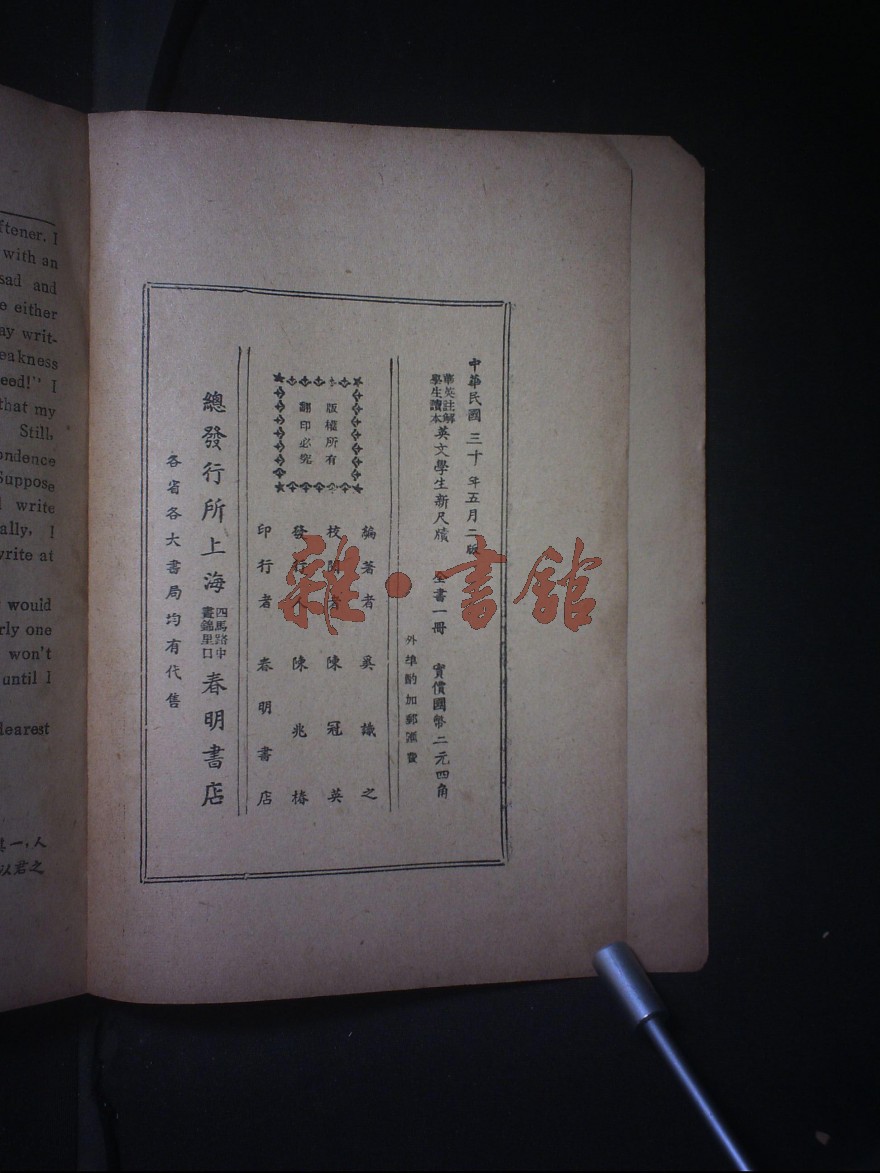 ftener. I
with an
sad and
e either
ay writ-
eakness
eed!" I
that my
Still,
ondence
Suppose
write
ally, I
write at
would
rly one
won't
until I
dearest
其一,人
以君之
中華民國三十年五月二版
華英註解
學生讀本
英文學生新尺牘 全書一冊 實價國幣二元四角
外埠酌加郵匯費
編著者 奚識之
校閱者 陳冠英
發行人 陳兆椿
印行者 春明書店
版權所有
翻印必究
總發行所上海 四馬路中 晝錦里口 春明書店
各省各大書局均有代售
雜·書館